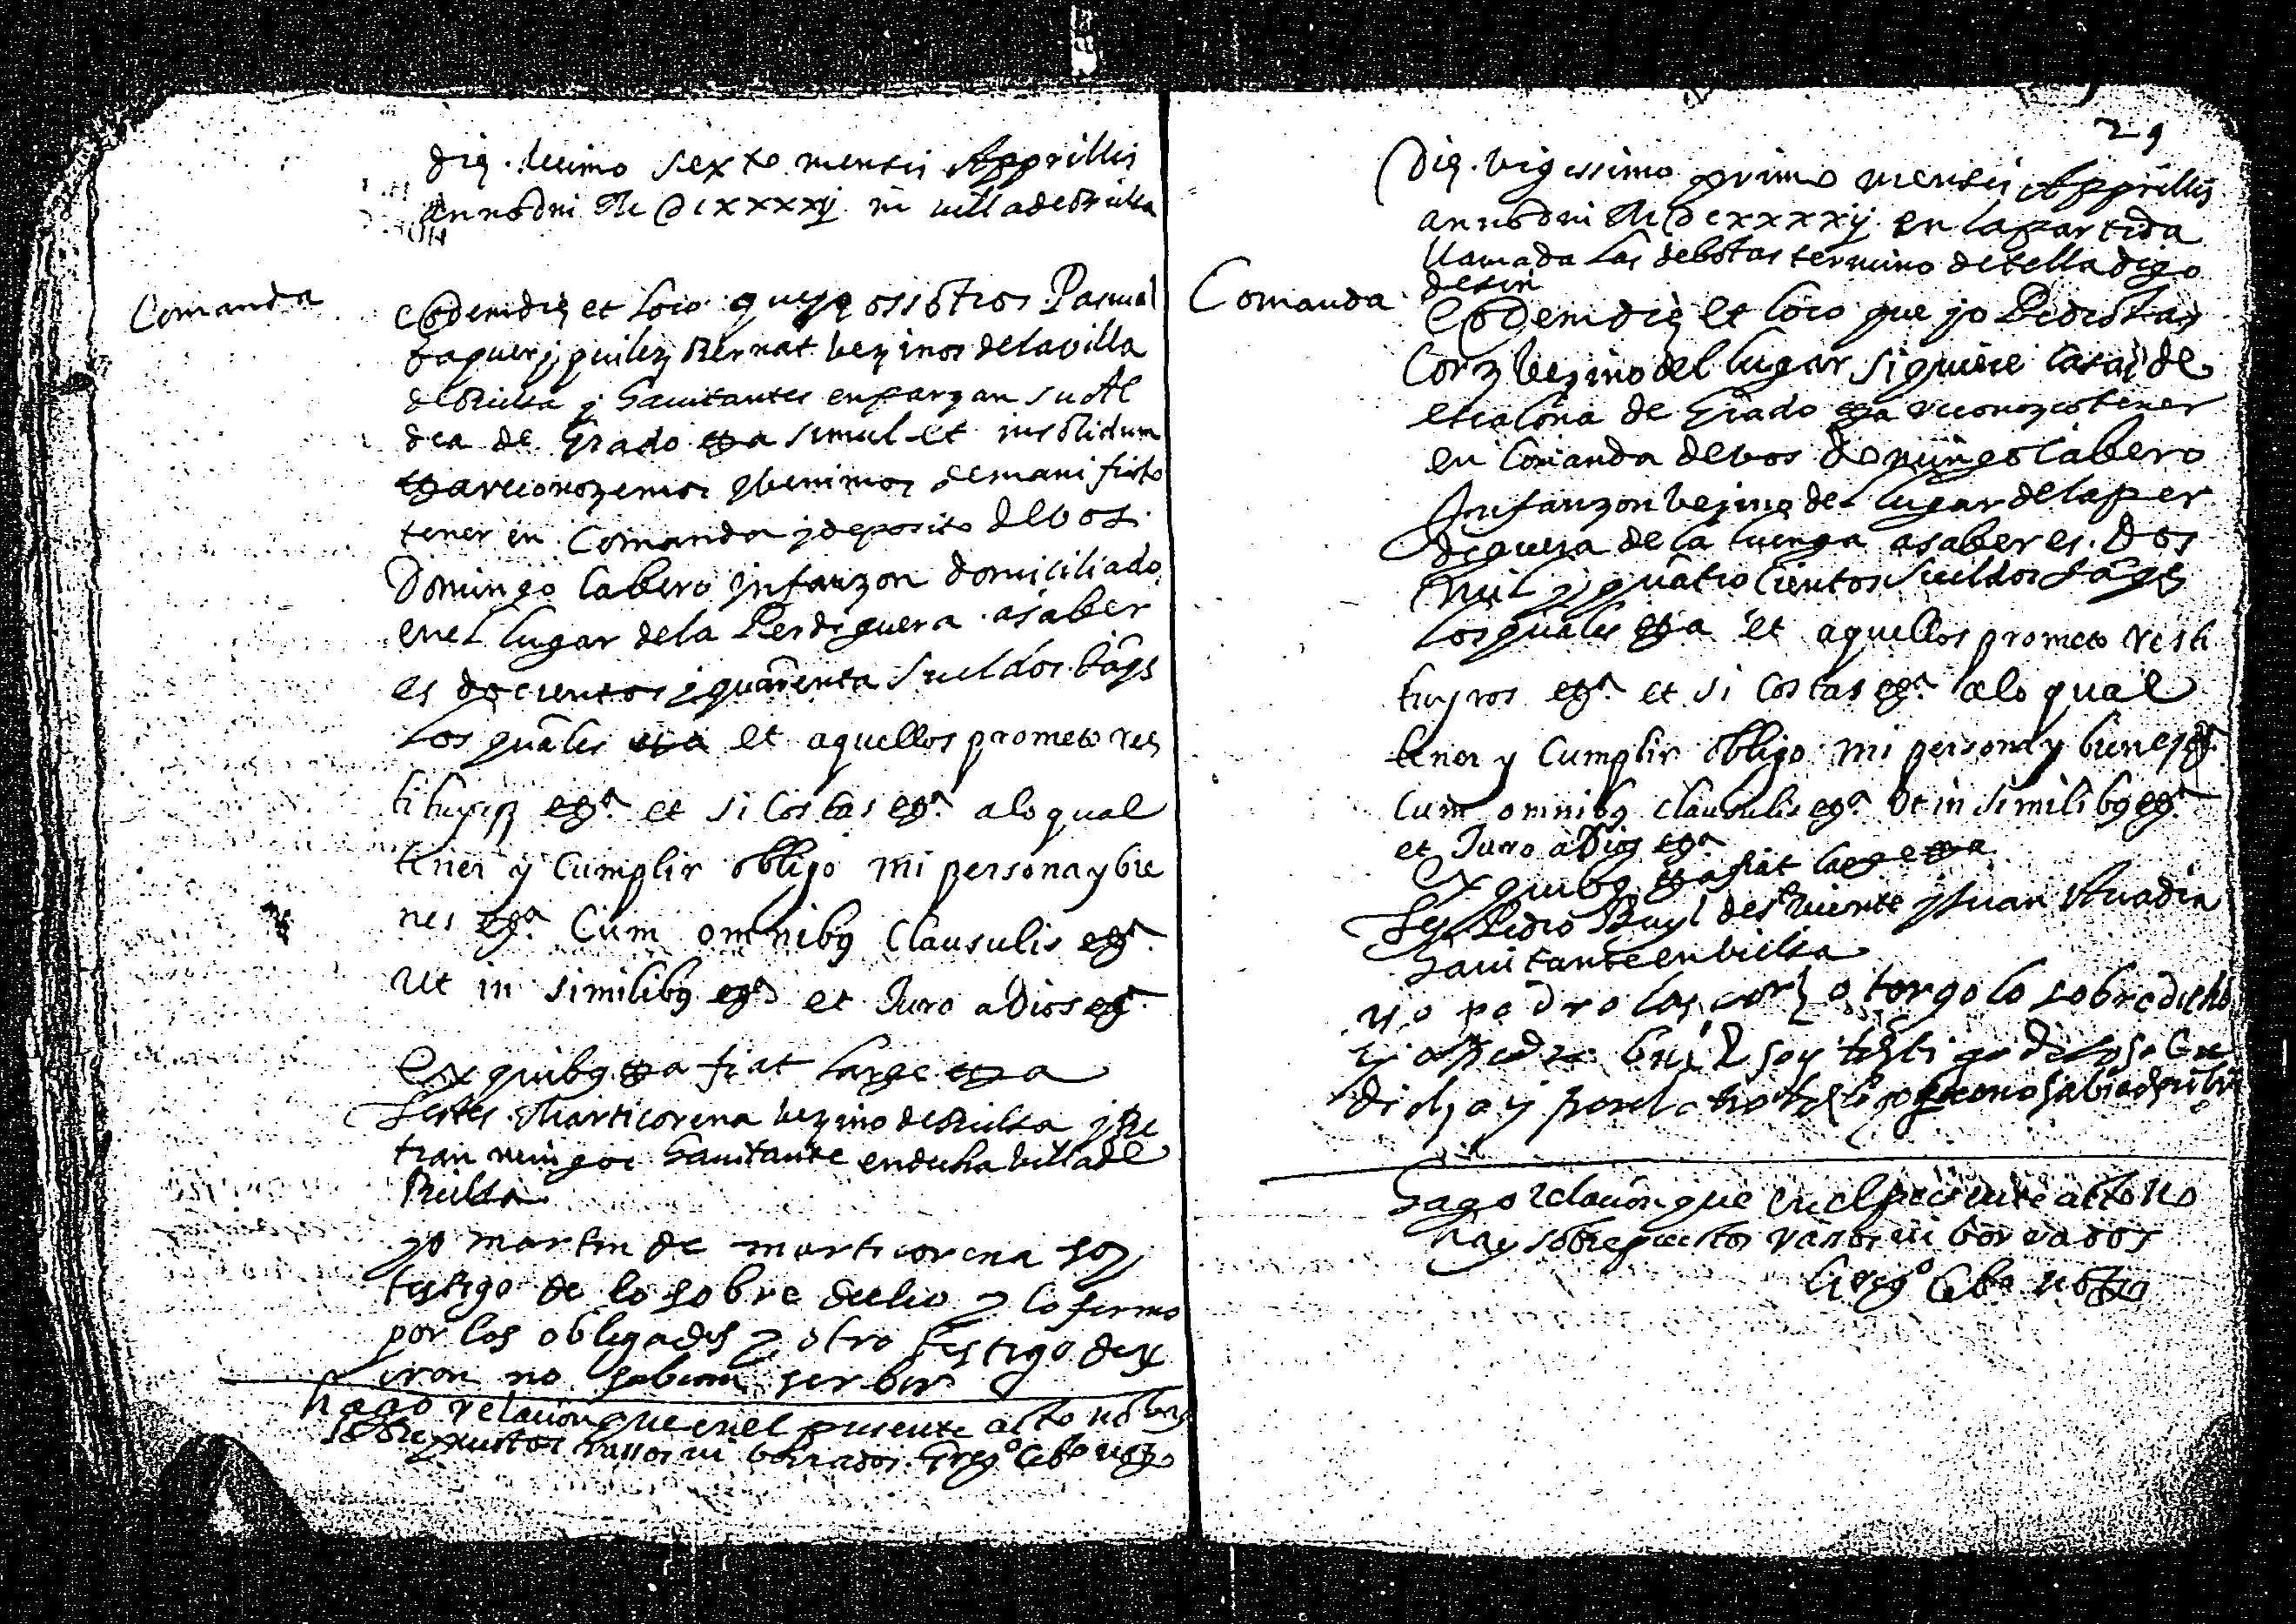 die decimo sexto mensis Apprillis
anno dni M DCxxxxij in villa de Ricla
Comanda
Eodem die et loco que nossotros Pasqual
y Bernat vezinos de la villa
de Ricla y havitantes en parzan su Al
dea de Grado etca simul et insolidum
etca reconozemos y venimos de manifiesto
tener en Comanda y deposito de vos
Domingo Cabero Infanzon domiciliado
en el lugar de la Perdiguera a saber
es docientos y quarenta sueldos jaqs
los quales etca et aquellos prometo res
tituyr etca et si costas etca a lo qual
tener y cumplir obligo mi persona y bie
nes etca Cum omnibus clausulis etca
ut in similibus etca et Juro a Dios etca
Ex quibus etca fiat large etca
testes Marticorena vezino de Ricla y
havitante en dicha villa de
Ricla
yo martin de marticorena soy
testigo de lo sobre dicho y lo firmo
por los obligados y otro testigo dix
eron no sabian scribir
hago relacion que en el presente acto no hay
sobrepuestos rassos ni borrados Greg.o notro
29
Die vigessimo primo mensis Apprillis
anno dni M DCxxxxij en la partida
llamada las debotas termino de tella digo
Comanda
Eodem die et loco que yo Pedro Las
Corz vezino del lugar si quiere casas de
escalona de Grado etca reconozco tener
en Comanda de vos Domingo Cabero
Infanzon vezino del lugar de la per
diguera de la luenga a saber es Dos
mil y quatro cientos sueldos jaqs
los quales etca et aquellos prometo resti
tuyros etca et si costas etca a lo qual
tener y cumplir obligo mi persona y bienes etca
cum omnibus clausulis etca ut in similibus etca
et Juro a Dios etca
Ex quibus etca fiat large etca
Pedro Buyl y Juan
havitante en
yo pedro las corz otorgo lo sobredicho
yo pedro buil soy testigo de lo sobre
dicho y por el otro testigo que no sabia
hago relacion que en el presente acto no
hay sobrepuestos rassos ni borrados
Greg.o notro